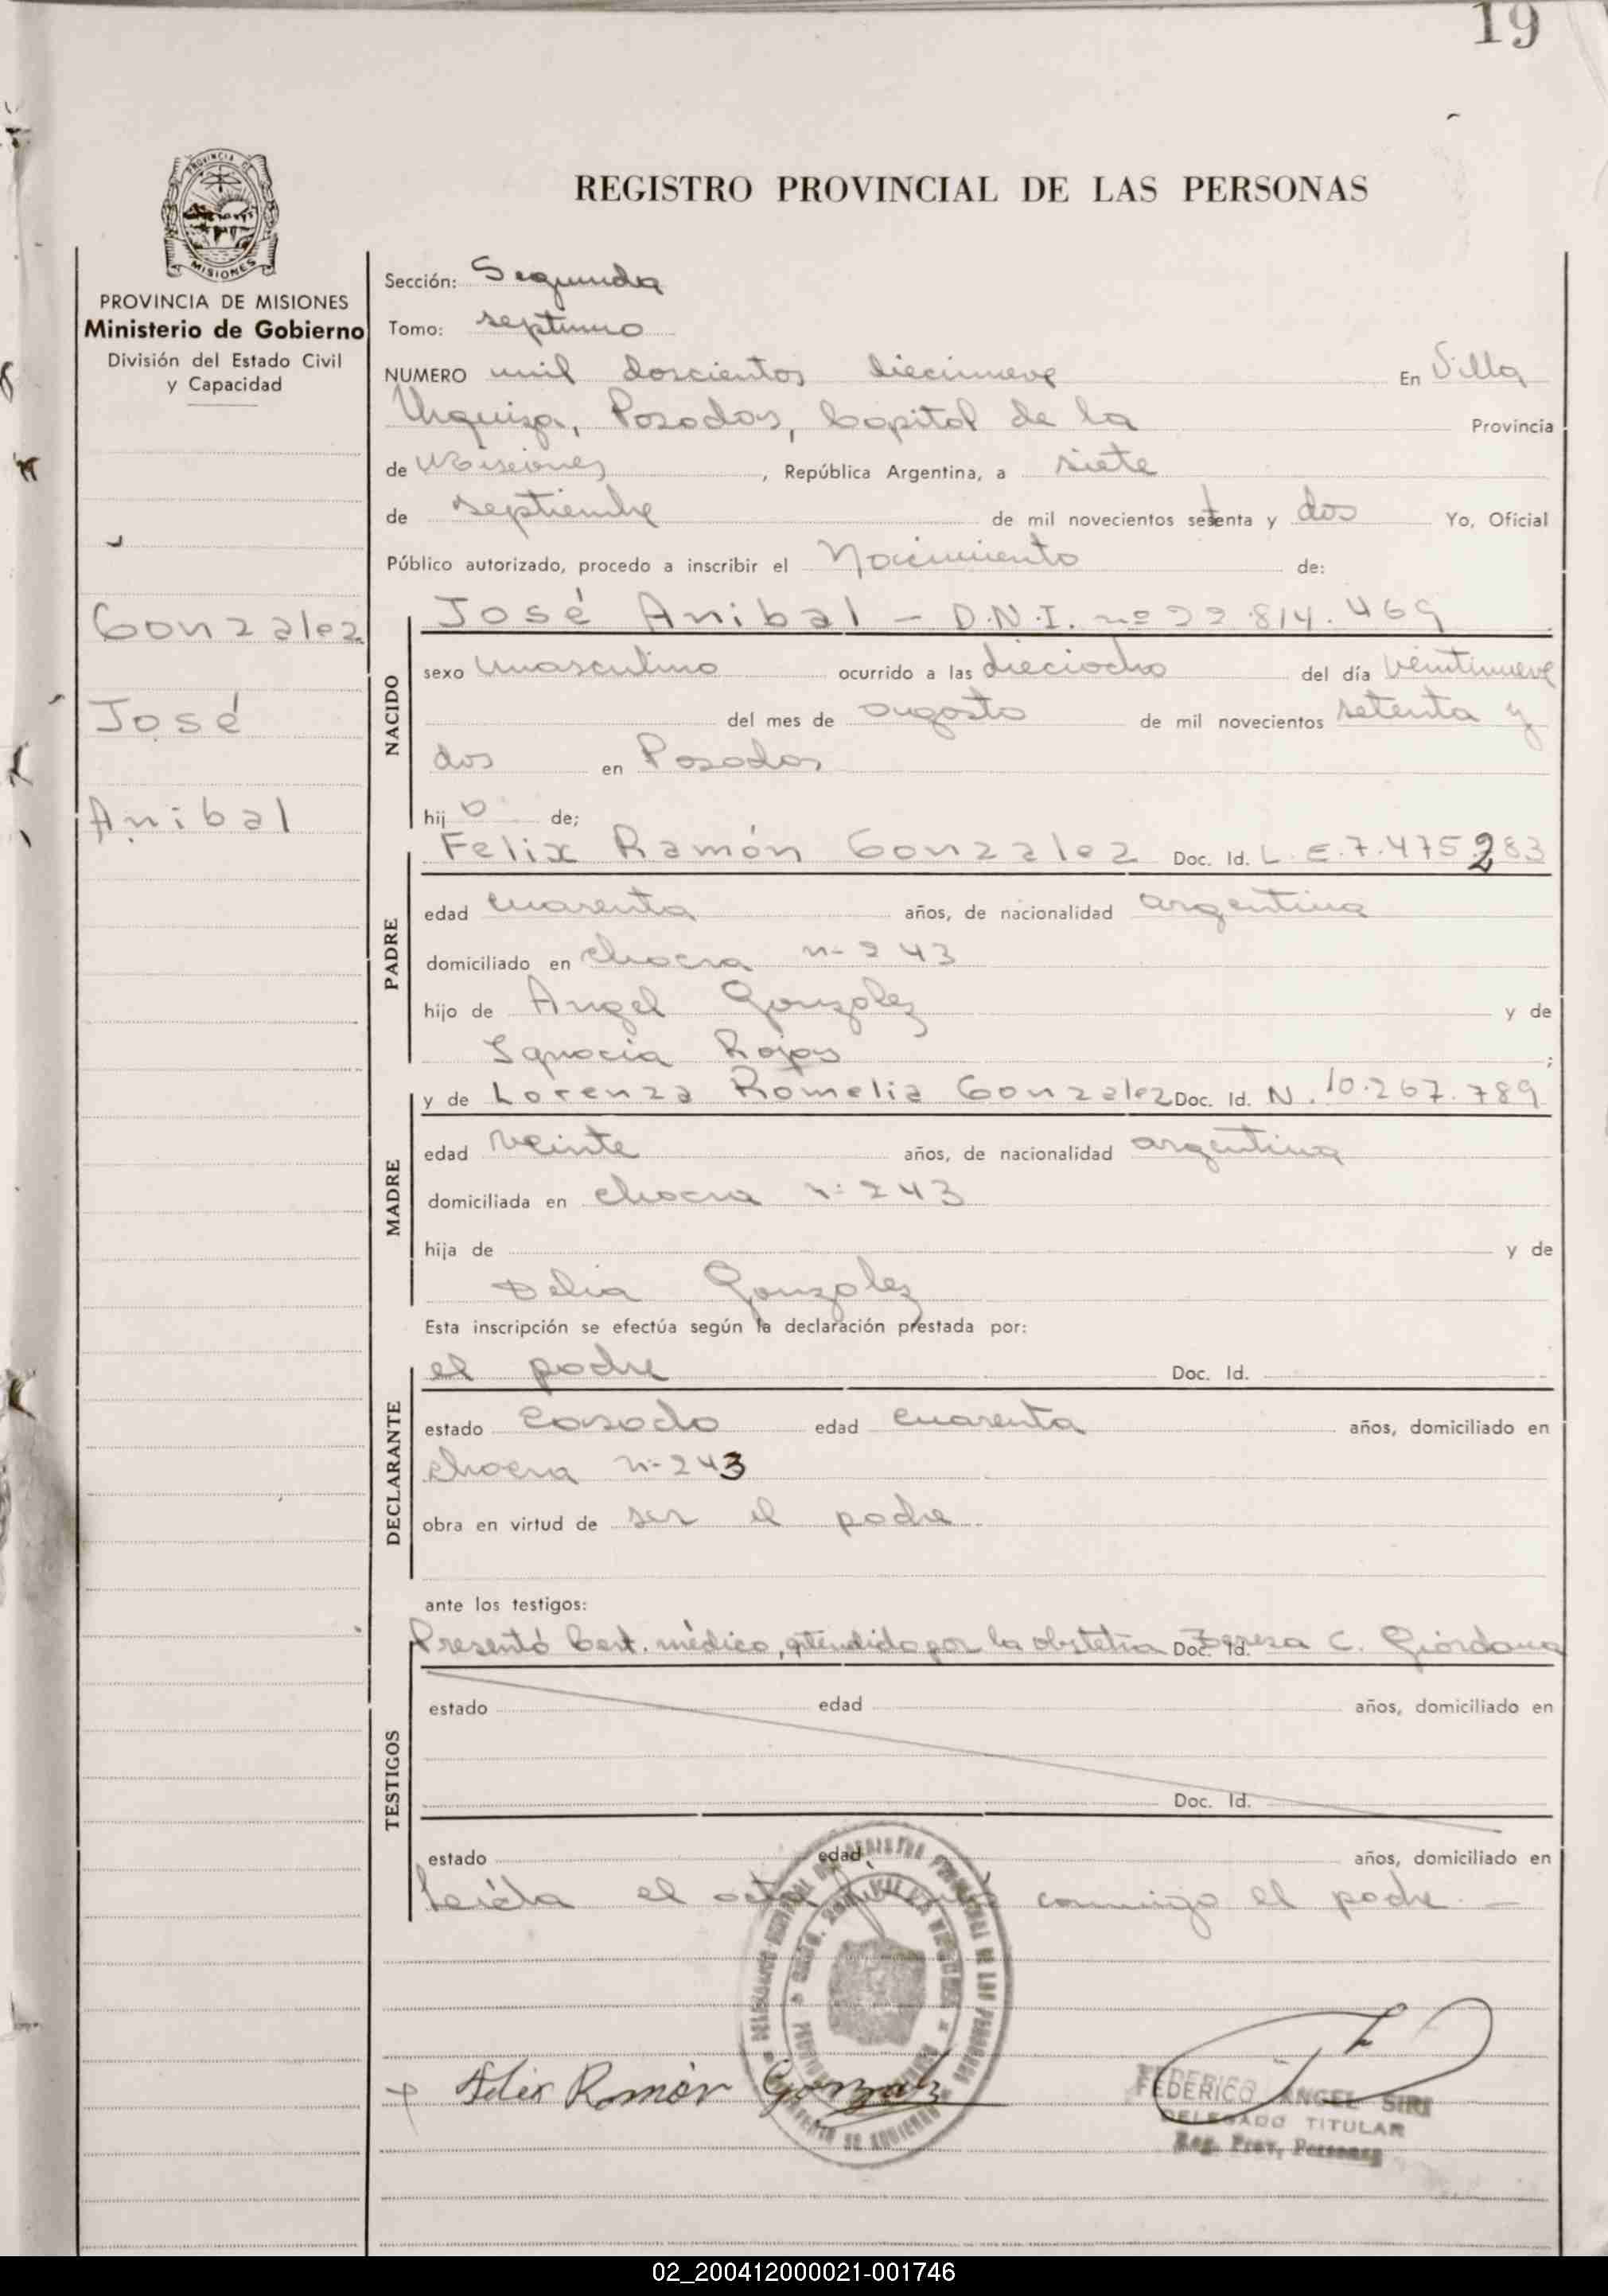 19
PROVINCIA DE
MISIONES
REGISTRO PROVINCIAL DE LAS PERSONAS
PROVINCIA DE MISIONES
Ministerio de Gobierno
División del Estado Civil
y Capacidad
Gonzalez
José
Anibal
Sección: Segunda
Tomo: septimo
NUMERO mil doscientos diecinueve En Villa
Urquiza, Posadas, Capital de la Provincia
de Misiones, República Argentina, a siete
de septiembre de mil novecientos setenta y dos Yo, Oficial
Público autorizado, procedo a inscribir el Nacimiento de:
NACIDO
José Anibal - D.N.I. nº 22.814.469
sexo masculino ocurrido a las dieciocho del día veintinueve
del mes de agosto de mil novecientos setenta y
dos en Posadas
hijo de;
PADRE
Felix Ramón Gonzalez Doc. Id. L.E.7.475.283
edad cuarenta años, de nacionalidad argentina
domiciliado en chacra n- 243
hijo de Angel Gonzalez y de
Ignacia Rojas ;
MADRE
y de Lorenza Romelia Gonzalez Doc. Id. N. 10.267.789
edad veinte años, de nacionalidad argentina
domiciliada en chacra n: 243
hija de y de
Delia Gonzalez
Esta inscripción se efectúa según la declaración prestada por:
DECLARANTE
el padre Doc. Id.
estado casado edad cuarenta años, domiciliado en
chacra n- 243
obra en virtud de ser el padre.
ante los testigos:
TESTIGOS
Presentó Cert. médico, atendido por la obstetra Doc. Id. Teresa C. Giordana
estado edad años, domiciliado en
Doc. Id.
estado edad años, domiciliado en
Leída el acta conmigo el padre. -
Felix Ramón Gonzalez
FEDERICO ANGEL SIRI
DELEGADO TITULAR
Reg. Prov. Personas
02_200412000021-001746